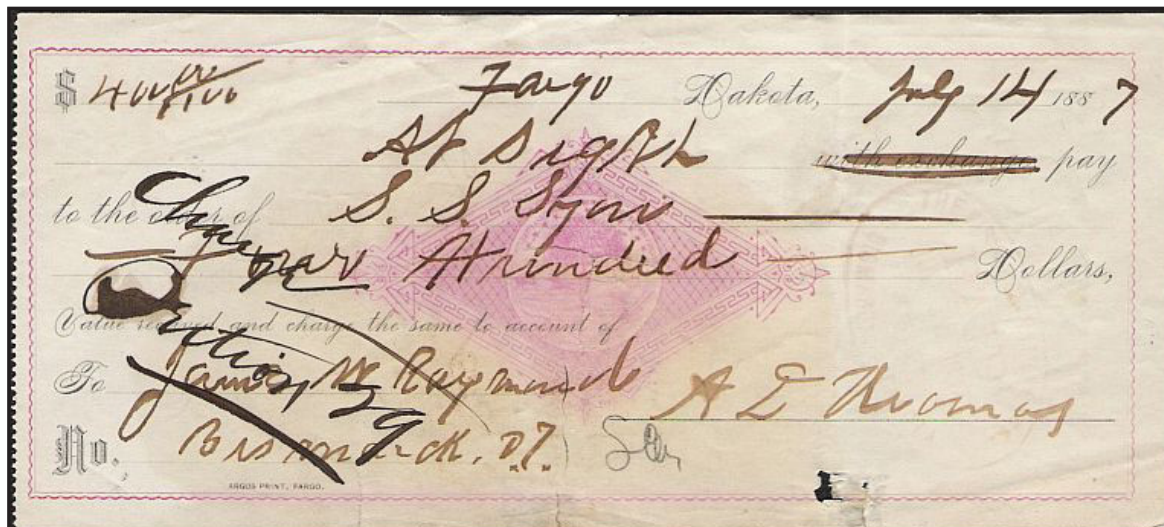 $ 400 00/100 Fargo Dakota, July 14 1887
At Sight with exchange pay
to the order of S. S. Lyon
Four Hundred Dollars,
Value received and charge the same to account of
To James W Raymond
A E Thomas
No. Bismarck, D.T.
ARGUS PRINT, FARGO.